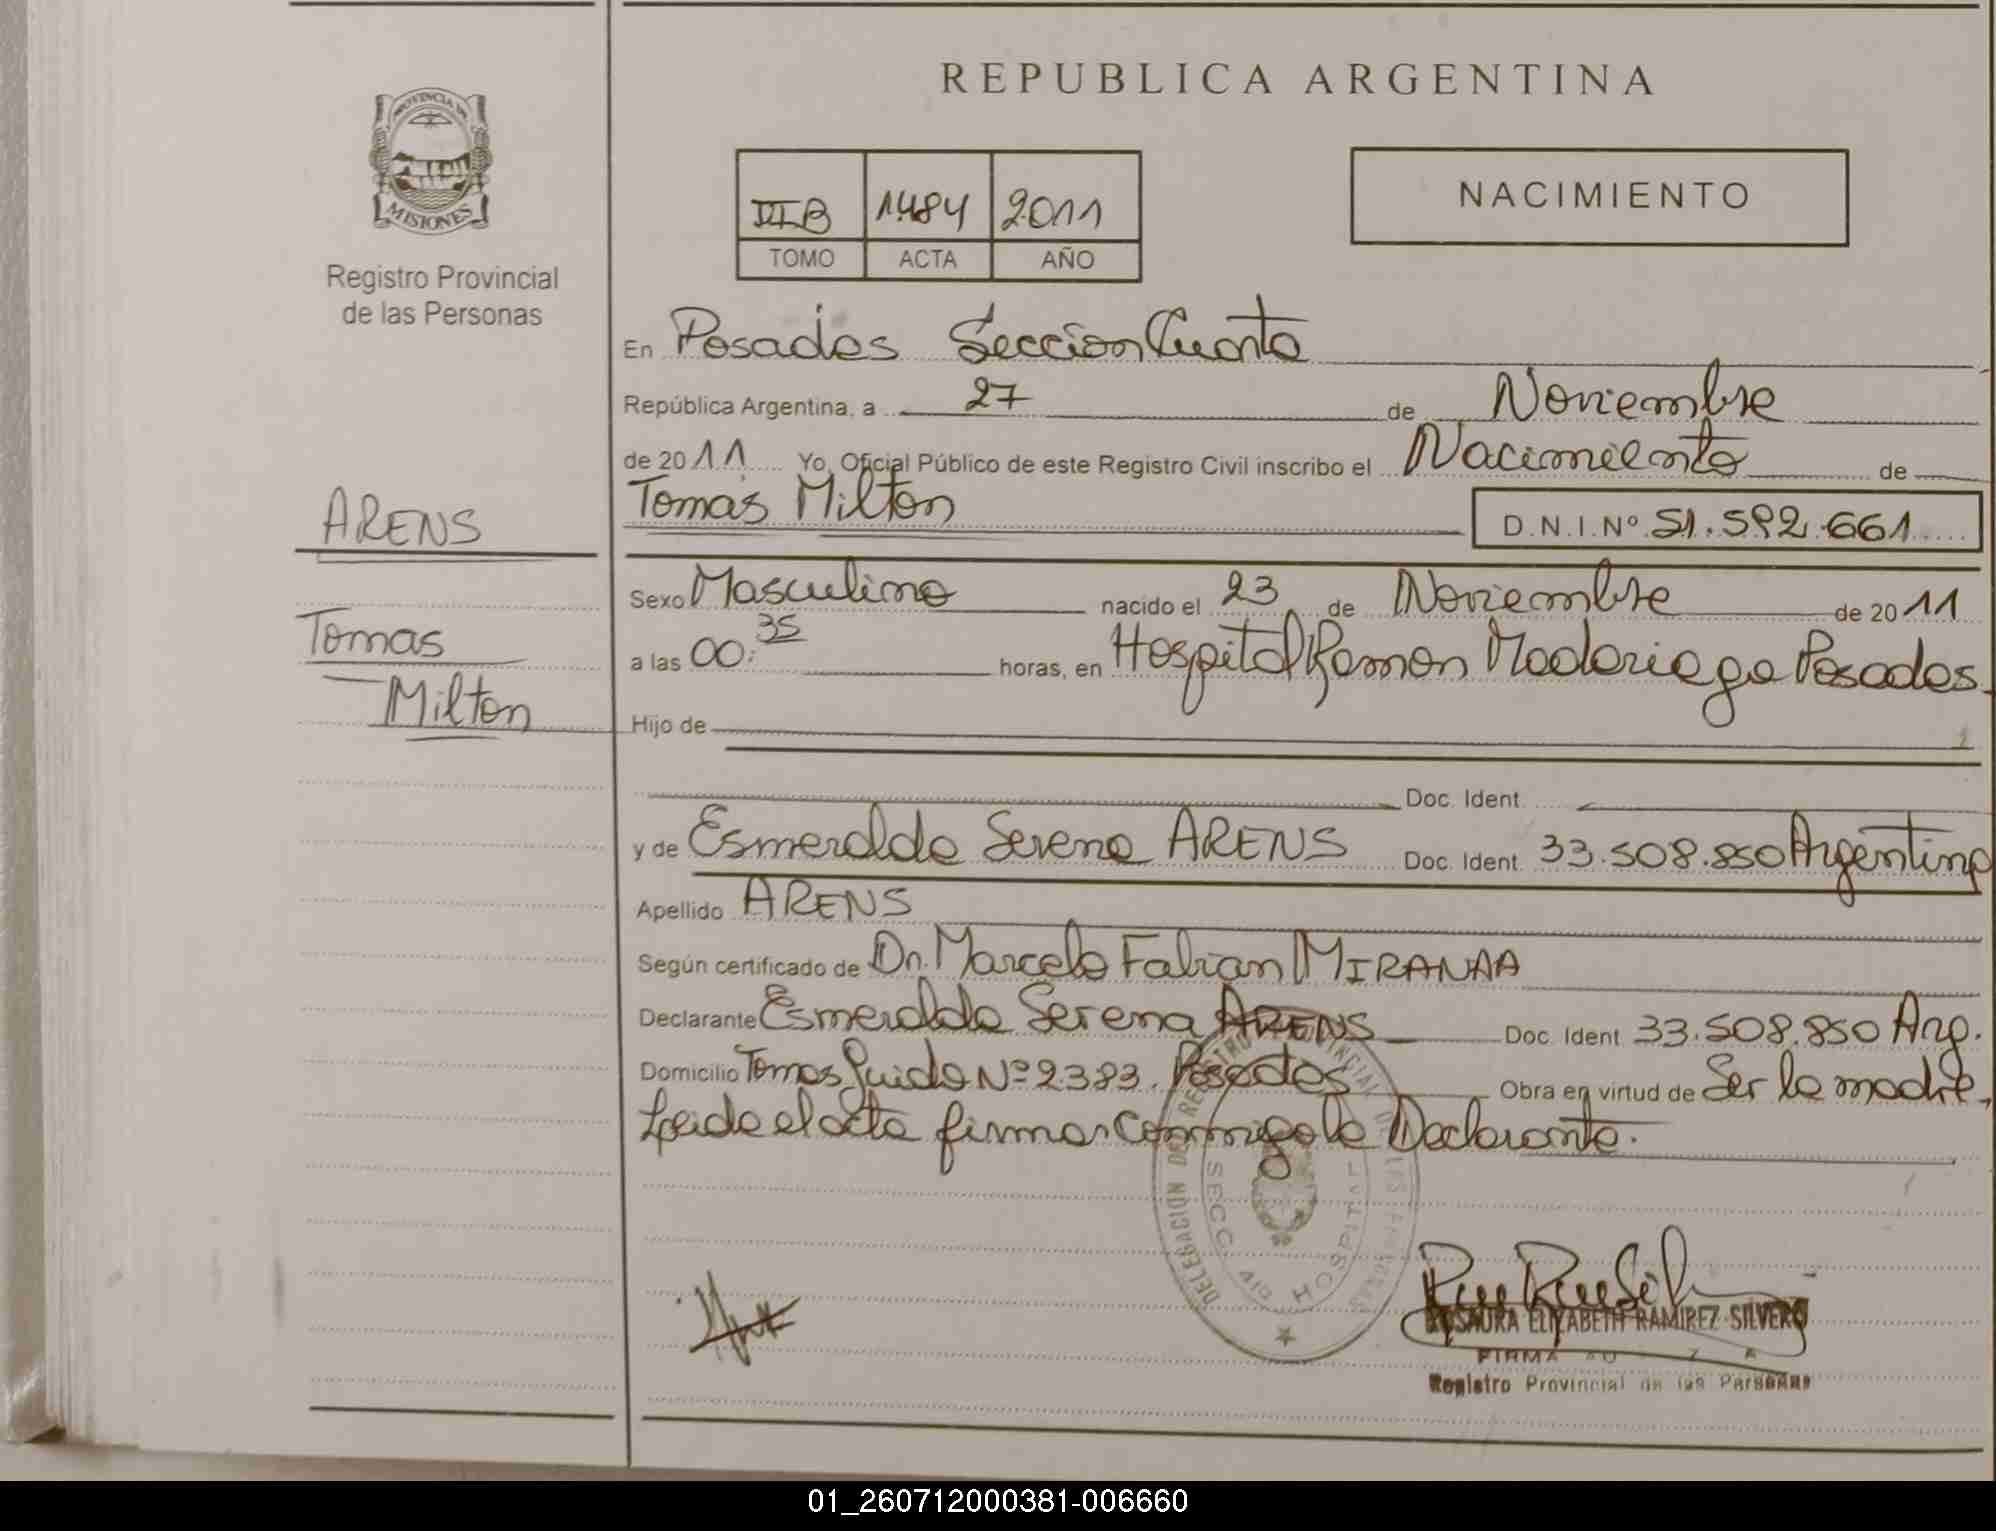 REPUBLICA ARGENTINA
PROVINCIA DE
MISIONES
Registro Provincial
de las Personas
NACIMIENTO
1484 2011
TOMO ACTA AÑO
En Posadas Sección Cuarta
República Argentina, a 27 de Noviembre
de 2011 Yo, Oficial Público de este Registro Civil inscribo el Nacimiento de
Tomás Milton D.N.I.Nº 51.592.661
ARENS
Tomas
Milton
Sexo Masculino nacido el 23 de Noviembre de 2011
a las 00:35 horas, en Hospital Ramon Madariaga Posadas.
Hijo de
Doc. Ident.
y de Esmeralda Serena ARENS Doc. Ident. 33.508.850 Argentina
Apellido ARENS
Según certificado de Dr. Marcelo Fabian MIRANDA
Declarante Esmeralda Serena ARENS Doc. Ident 33.508.850 Arg.
Domicilio Tomas Guido Nº 2383. Posadas Obra en virtud de Ser la madre,
Leida el acta firma conmigo la Declarante.
DELEGACION DEL REGISTRO PROVINCIAL DE LAS PERSONAS
SECC. 4ta HOSPITAL
ROSAURA ELIZABETH RAMIREZ SILVERO
FIRMA
Registro Provincial de las Personas
01_260712000381-006660